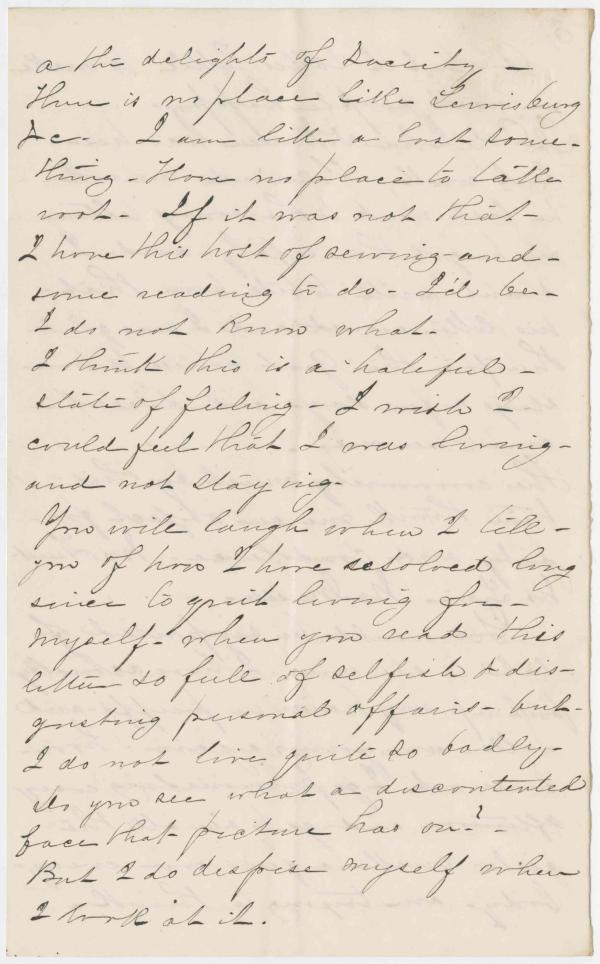 & the delights of Society —
There is no place like Lewisburg
&c. I am like a lost some-
thing - Have no place to take
root - If it was not that
I have this host of sewing and -
some reading to do - I'd be -
I do not know what -
I think this is a hateful -
state of feeling - I wish I
could feel that I was living -
and not staying -
You will laugh when I tell -
you of how I have resolved long
since to quit living for -
myself - when you read this
letter so full of selfish & dis-
gusting personal affairs - but -
I do not live quite so badly -
Do you see what a discontented
face that picture has on? -
But I do despise myself when
I look at it.